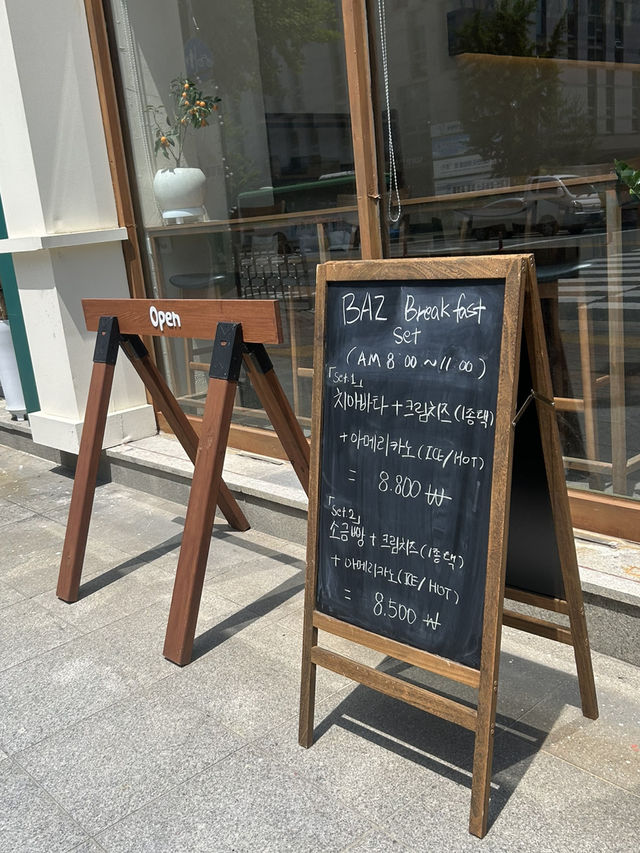 Open
BAZ Breakfast
Set
(AM 8:00 ~ 11:00)
「Set.1」
치아바타 + 크림치즈(1종택)
+ 아메리카노(ICE/HOT)
= 8.800 ₩
「Set.2」
소금빵 + 크림치즈(1종택)
+ 아메리카노(ICE/HOT)
= 8.500 ₩